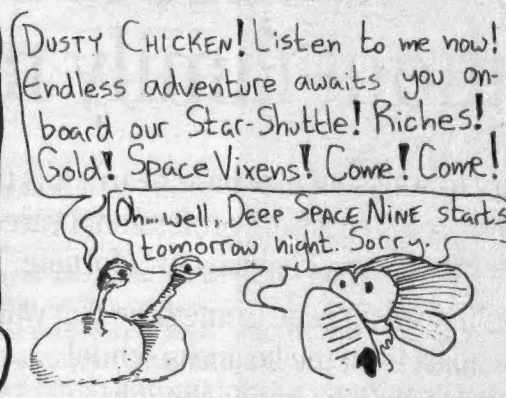 DUSTY CHICKEN! Listen to me now!
Endless adventure awaits you on-
board our Star-Shuttle! Riches!
Gold! Space Vixens! Come! Come!
Oh... well, DEEP SPACE NINE starts
tomorrow night. Sorry.